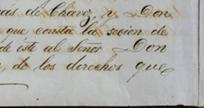 de Chavez y Don
que consta la secion de
de éste al Señor Don
de los derechos que